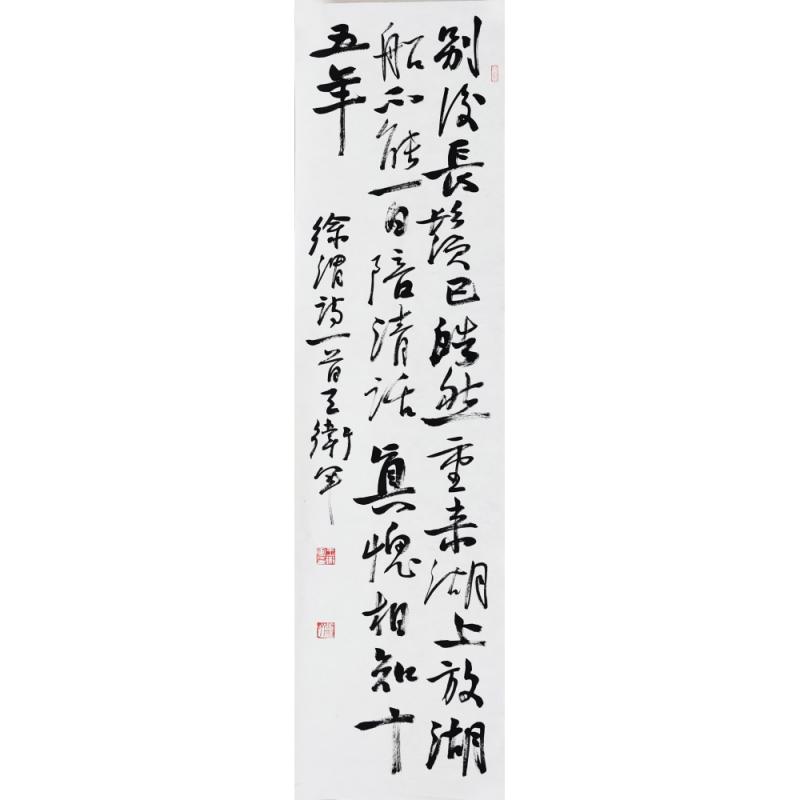 別後長鬚已皓然重来湖上放湖
船不能一日陪清話真愧相知十
五年
徐渭詩一首王衛軍